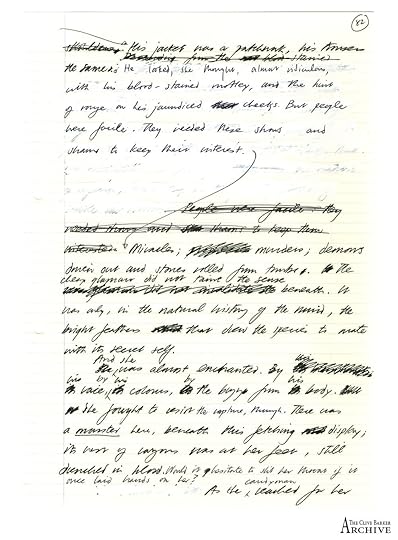 82
His jacket was a patchwork, his trousers
the same. He looked, she thought, almost ridiculous,
with his blood-stained motley, and the hint
of rouge on his jaundiced cheeks. But people
were facile. They needed these shows and
shams to keep their interest.
People were facile. They
needed shows and shams to keep them
interested Miracles; murders; demons
driven out and stones rolled from tombs. the
cheap glamour did not taint the sense
beneath. It
was only, in the natural history of the mind, the
bright feathers that drew the species to mate
with its secret self.
And she
was almost enchanted. By his
his by his by his
voice, colours, the from body.
She fought to resist the rapture, though. There was
a monster here, beneath this fetching display;
its nest of razors was at her feet, still
drenched in blood. Would it hesitate to slit her throat if it
once laid hands on her?
As the candyman reached for her
THE CLIVE BARKER
ARCHIVE